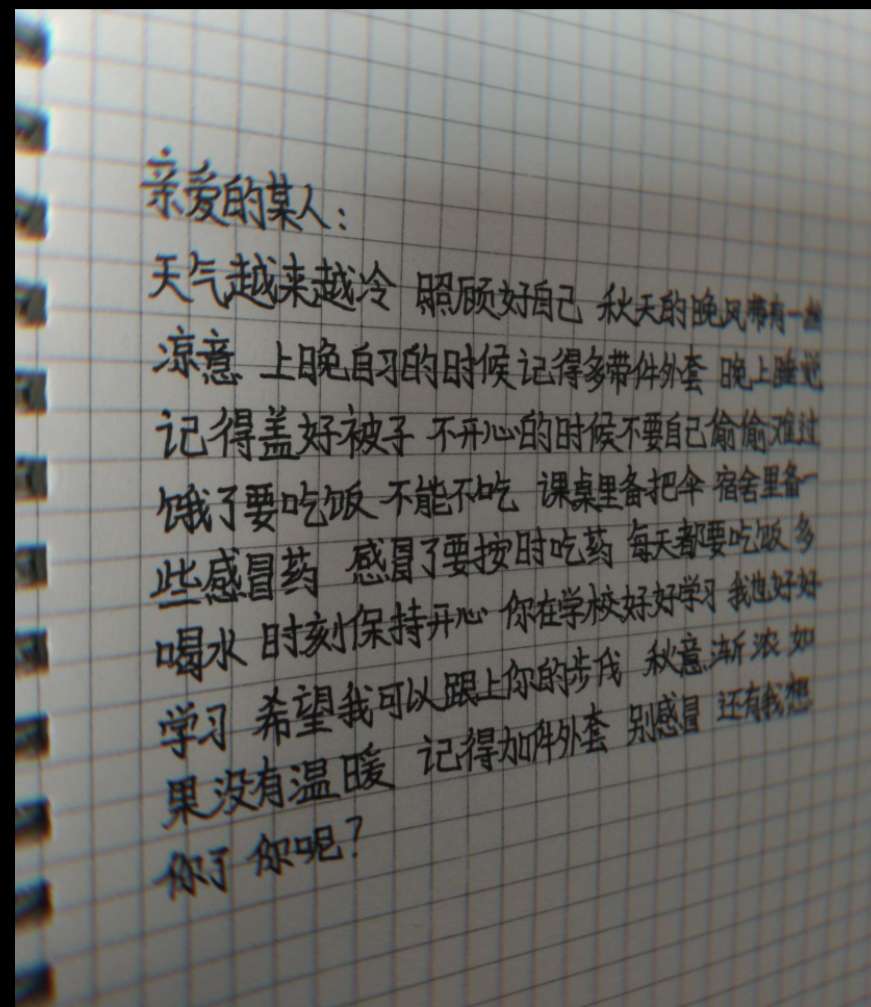 亲爱的某人：
天气越来越冷 照顾好自己 秋天的晚风带有一些
凉意 上晚自习的时候记得多带件外套 晚上睡觉
记得盖好被子 不开心的时候不要自己偷偷难过
饿了要吃饭 不能不吃 课桌里备把伞 宿舍里备一
些感冒药 感冒了要按时吃药 每天都要吃饭 多
喝水 时刻保持开心 你在学校好好学习 我也好好
学习 希望我可以跟上你的步伐 秋意渐浓 如
果没有温暖 记得加件外套 别感冒 还有我想
你了 你呢？